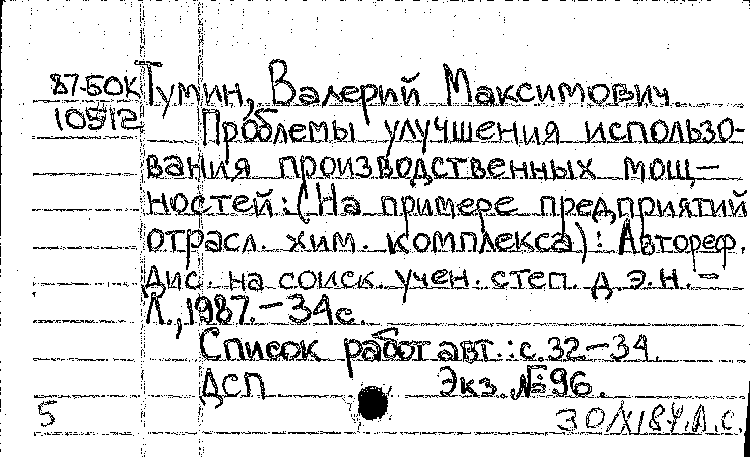 87-БОК Тумин, Валерий Максимович.
10512 Проблемы улучшения использо-
вания производственных мощ-
ностей: (На примере предприятий
отрасл. хим. комплекса): Автореф.
Дис. на соиск. учен. степ. д.э.н. -
Л., 1987. - 34с.
Список работ авт.: с. 32-34.
ДСП Экз. №96.
5